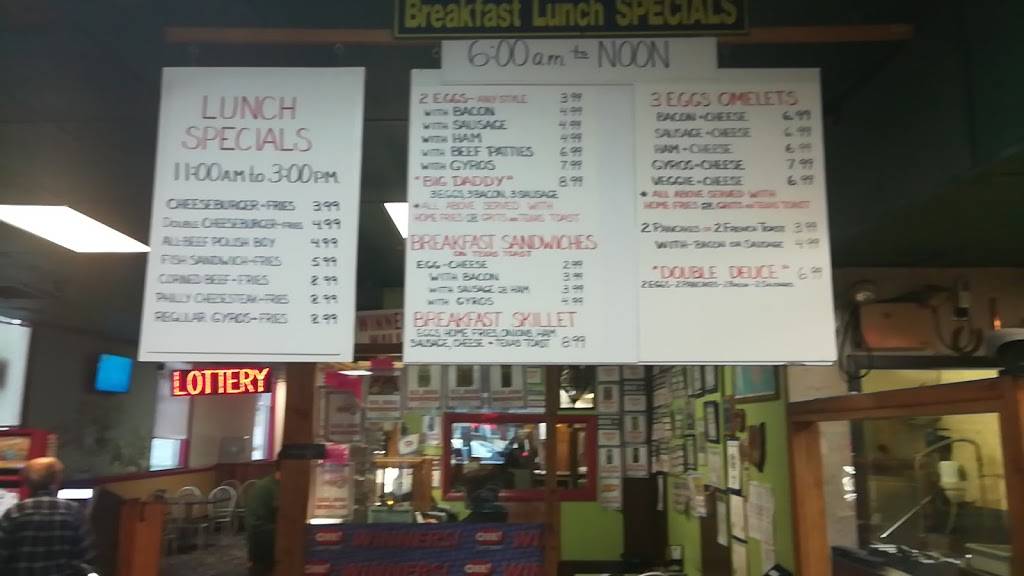 Breakfast Lunch SPECIALS
6:00 am to NOON
LUNCH
SPECIALS
11:00 AM to 3:00 PM
CHEESEBURGER-FRIES 3.99
DOUBLE CHEESEBURGER-FRIES 4.99
ALL-BEEF POLISH BOY 4.99
FISH SANDWICH-FRIES 5.99
CORNED BEEF-FRIES 8.99
PHILLY CHEESESTEAK-FRIES 8.99
REGULAR GYROS-FRIES 8.99
2 EGGS- ANY STYLE 3.99
WITH BACON 4.99
WITH SAUSAGE 4.99
WITH HAM 4.99
WITH BEEF PATTIES 6.99
WITH GYROS 7.99
"BIG DADDY" 8.99
3 EGGS, 3 BACON, 3 SAUSAGE
* ALL ABOVE SERVED WITH
HOME FRIES OR GRITS AND TEXAS TOAST
BREAKFAST SANDWICHES
ON TEXAS TOAST
EGG-CHEESE 2.99
WITH BACON 3.99
WITH SAUSAGE OR HAM 3.99
WITH GYROS 4.99
BREAKFAST SKILLET
EGGS, HOME FRIES, ONIONS, HAM
SAUSAGE, CHEESE + TEXAS TOAST 8.99
3 EGGS OMELETS
BACON-CHEESE 6.99
SAUSAGE-CHEESE 6.99
HAM-CHEESE 6.99
GYROS-CHEESE 7.99
VEGGIE-CHEESE 6.99
* ALL ABOVE SERVED WITH
HOME FRIES OR GRITS AND TEXAS TOAST
2 PANCAKES OR 2 FRENCH TOAST 3.99
WITH-BACON OR SAUSAGE 4.99
"DOUBLE DEUCE" 6.99
2 EGGS-2 PANCAKES-2 BACON-2 SAUSAGES
LOTTERY
WINNERS!
WINNERS!